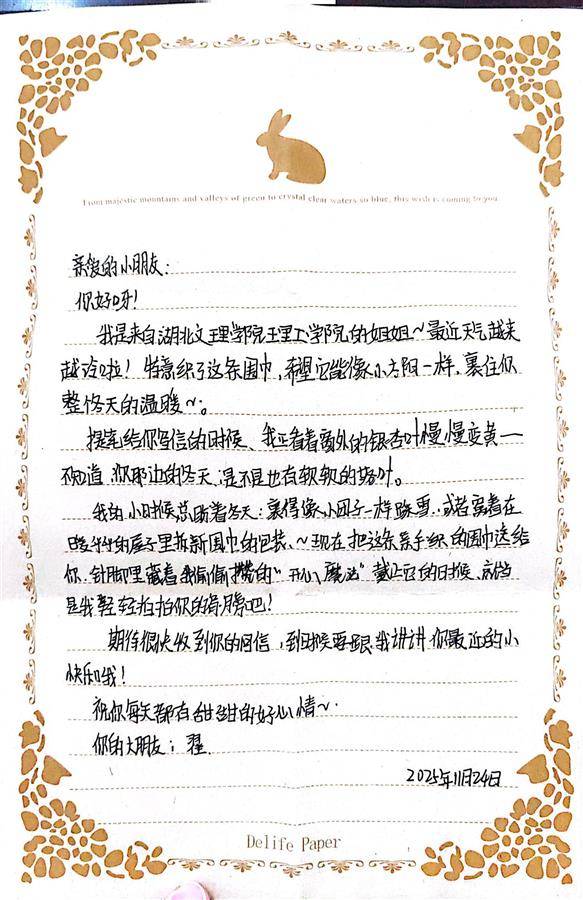 From majestic mountains and valleys of green to crystal clear waters so blue, this wish is coming to you.
亲爱的小朋友：
你好呀！
我是来自湖北文理学院理工学院的姐姐~最近天气越来
越冷啦！特意织了这条围巾，希望它能像小太阳一样，裹住你
整个冬天的温暖~。
提笔给你写信的时候、我正看着窗外的银杏叶慢慢变黄一
不知道 你那边的冬天 是不是也有软软的落叶。
我的小时候总盼着冬天：裹得像小团子一样踩雪、或者窝着在
暖烘烘的屋子里拆新围巾的包装、~现在把这条亲手织的围巾送给
你、针脚里藏着我偷偷攒的"开心魔法"戴上它的时候、就当
是我轻轻拍拍你的肩膀吧！
期待很快收到你的回信，到时候要跟我讲讲你最近的小
快乐哦！
祝你每天都有甜甜的好心情~
你的大朋友：翟
2025年11月24日
Delife Paper